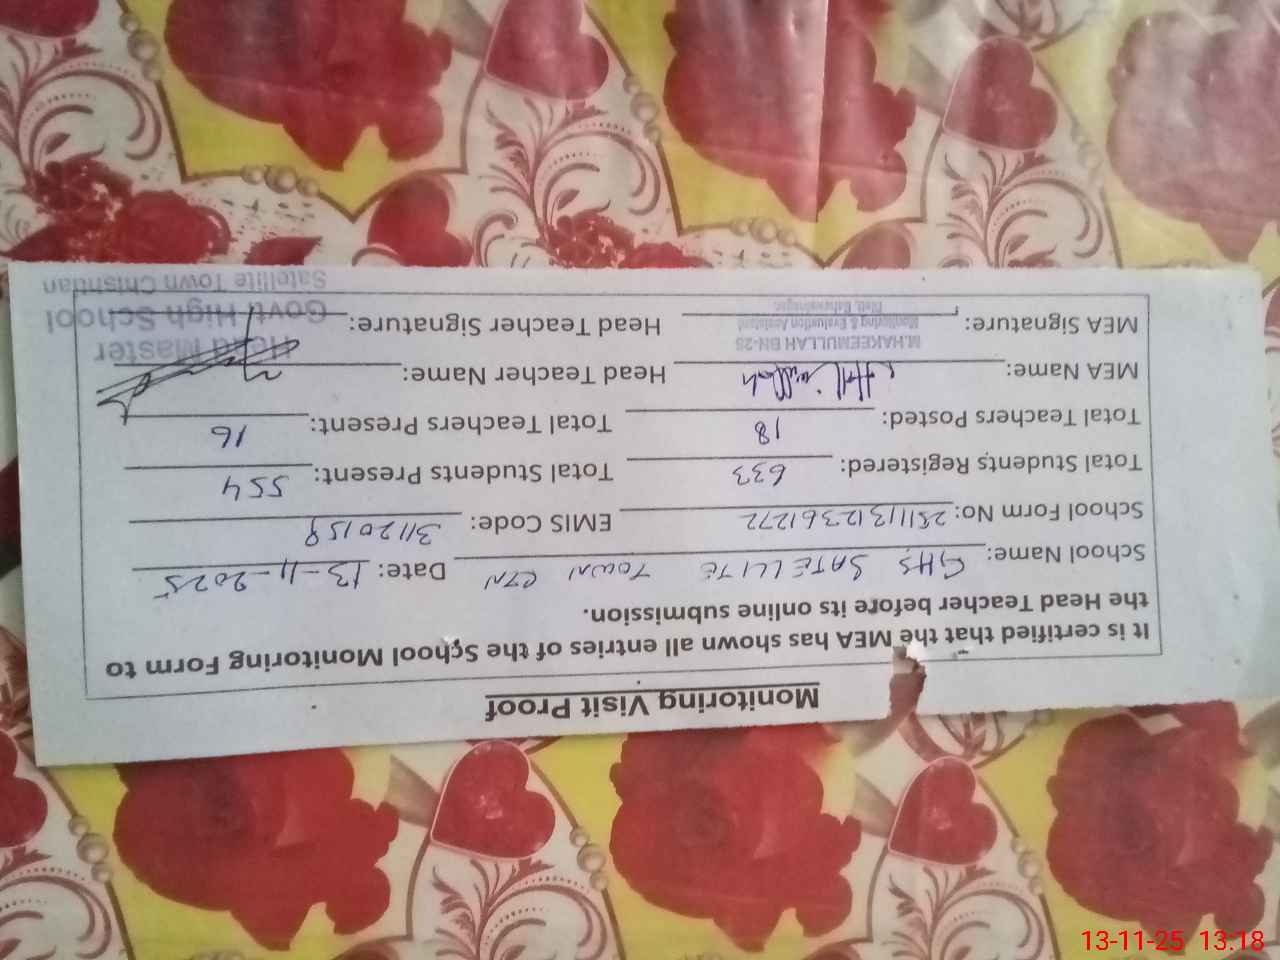 Monitoring Visit Proof
It is certified that the MEA has shown all entries of the School Monitoring Form to
the Head Teacher before its online submission.
School Name: GHS SATELLITE TOWN CTN Date: 13-11-2025
School Form No: 25111312361272 EMIS Code: 31120159
Total Students Registered: 633 Total Students Present: 554
Total Teachers Posted: 18 Total Teachers Present: 16
MEA Name: Head Teacher Name:
M.HAKEEMULLAH BN-25
Monitoring & Evaluation Assistant
Distt. Bahawalnagar.
MEA Signature: Head Teacher Signature:
Head Master
Govt. High School
Satellite Town Chishtian
13-11-25 13:18